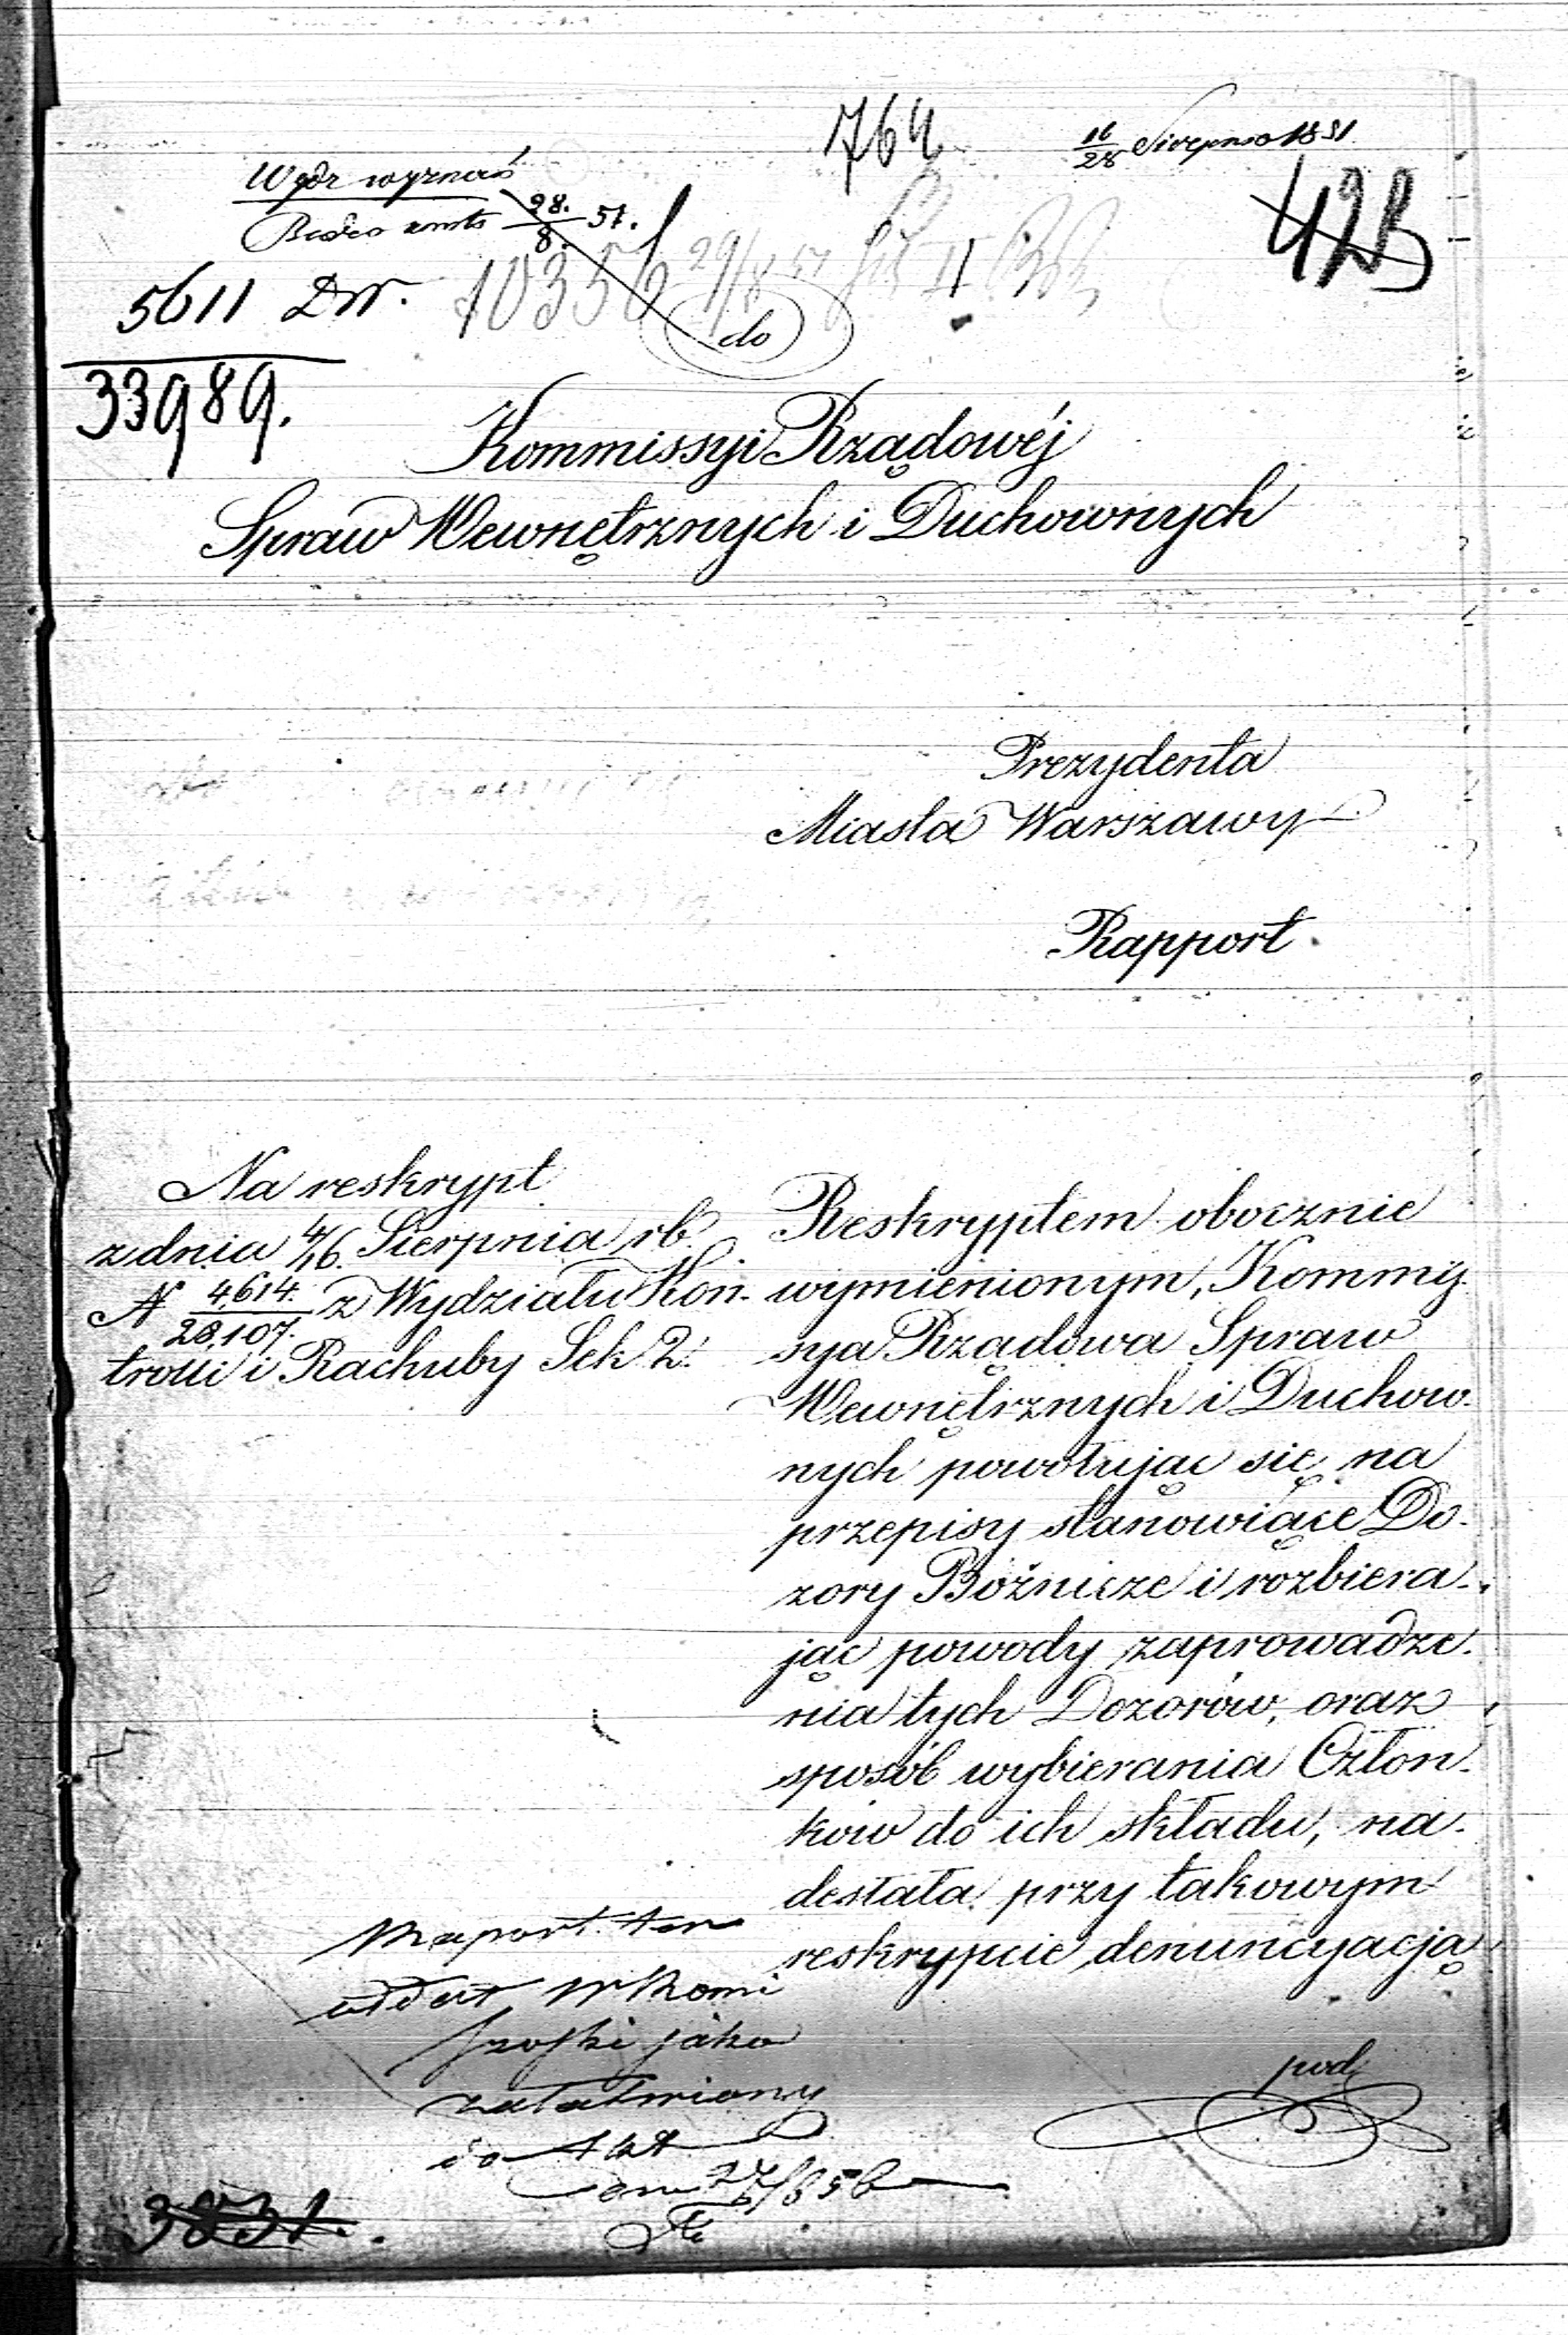 764
16/28 Sierpnia 1851
423
Wydz wyznań
28./8. 51.
5611 DW.
10356 29/8 51
33989.
do
Kommissyi Rządowéj
Spraw Wewnętrznych i Duchownych
Prezydenta
Miasta Warszawy
Rapport.
Na reskrypt
z dnia 4/16. Sierpnia rb.
N 4614./28.107. z Wydziału Kon-
trolli i Rachuby Sek 2.
Reskryptem obocznie
wymienionym, Kommis-
sya Rządowa Spraw
Wewnętrznych i Duchow-
nych powołując się na
przepisy stanowiące Do-
zory Bóżnicze i rozbiera-
jąc powody zaprowadze-
nia tych Dozorów, oraz
sposób wybierania Człon-
ków do ich składu, na-
desłała przy takowym
reskrypcie denuncyacją
pod
Raport ten
jako
załatwiony
do Akt
3831.